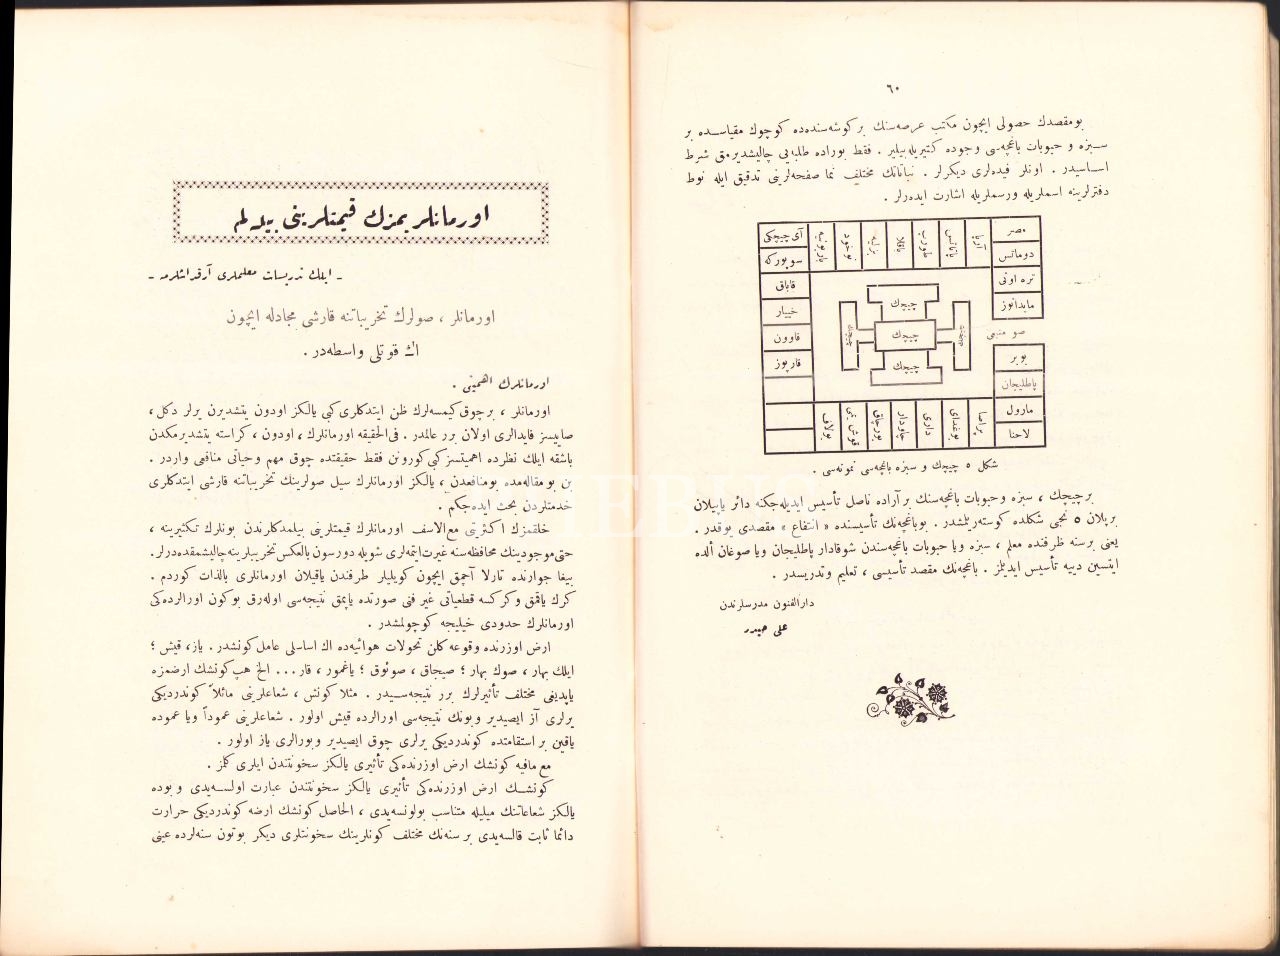 ٦٠
بومقصدك حصولى ایچون مكتب عرصه‌سنك بر كوشه‌سنده‌ده كوچوك مقیاسـده بر
سـبزه و حبوبات باغچه‌سی وجوده كتیریله‌بیلیر . فقط بوراده طلبه‌یی چالیشدیرمق شرط
اسـاسیدر . اونلر فیده‌لری دیكرلر . نباتاتك مختلف نما صفحه‌لرینی تدقیق ایله نوط
دفترلرینه اسملریله ورسملریله اشارت ایده‌رلر .
مصر
آرپا
پاتاتس
باقلا
بزلیه
نوخود
آی چیچكی
دوماتس
سوپوركه
تره اوتی
قاباق
مایدانوز
خییار
چیچك
چیچك
چیچك
چیچك
صو منبعی
قاوون
بوبر
قارپوز
چیچك
پاطلیجان
مارول
پراصا
بوغدای
داری
چاودار
بورچاق
قوش یمی
یولاف
لاحنا
شكل ٥ چیچك و سبزه باغچه‌سی نمونه‌سی .
بر چیچك ، سبزه وحبوبات باغچه‌سنك بر آراده ناصل تأسیس ایدیله‌جكنه دائر یاپیلان
بر پلان ٥ نجی شكلده كوسته‌ریلشدر . بوباغچه‌نك تأسیسنده « انتفاع » مقصدی یوقدر .
یعنی بر سنه ظرفنده معلم ، سبزه ویا حبوبات باغچه‌سندن شوقادار پاطلیجان ویا صوغان الده
ایتسین دییه تأسیس ایدیلمز . باغچه‌نك مقصد تأسیسی ، تعلیم وتدریسدر .
دارالفنون مدرسلرندن
علی حیدر
اورمانلریمزك قیمتلرینی بیلـه‌لم
ـ ایلك تدریسات معلملری آرقداشلرمه ـ
اورمانلر ، صولرك تخریباتنه قارشی مجادله ایچون
اك قوتلی واسطه‌در .
اورمانلرك اهمیتی .
اورمانلر ، برچوق كیمسه‌لرك ظن ایتدكلری كبی یالكز اودون یتشدیرن یرلر دكل ،
صاییسز فایدالری اولان برر عالمدر . فی‌الحقیقه اورمانلرك ، اودون ، كراسته یتشدیرمكدن
باشقه ایلك نظرده اهمیتسز كبی كورونن فقط حقیقتده چوق مهم وحیاتی منافعی واردر .
بن بو مقاله‌مده بومنافعدن ، یالكز اورمانلرك سیل صولرینك تخریباتنه قارشی ایتدكلری
خدمتلردن بحث ایده‌جكم .
خلقمزك اكثرتی مع‌الاسف اورمانلرك قیمتلرینی بیلمدكلرندن بونلرك تكثیرینه ،
حتی موجودینك محافظه‌سنه غیرت ایتمه‌لری شویله دورسون بالعكس تخریبلرینه چالیشمقده‌درلر.
بیغا جوارنده تارلا آچمق ایچون كویلیلر طرفندن یاقیلان اورمانلری بالذات كوردم .
كرك یاقمق وكركسه قطعیاتی غیر فنی صورتده یاپمق نتیجه‌سی اوله‌رق بوكون اورالرده‌كی
اورمانلرك حدودی خیلیجه كوچولمشدر .
ارض اوزرنده وقوعه كلن تحولات هوائیه‌ده اك اسـاسلی عامل كونشدر . یاز ، قیش ؛
ایلك بهار ، صوك بهار ؛ صیجاق ، صوئوق ؛ یاغمور ، قار . . . الخ هپ كونشك ارضمزه
یاپدیغی مختلف تأثیرلرك برر نتیجه‌سـیدر . مثلا كونش ، شعاعلرینی مائلاً كوندردیكی
یرلری آز ایصیدیر وبونك نتیجه‌سی اورالرده قیش اولور . شعاعلرینی عموداً ویا عموده
یاقین بر استقامتده كوندردیكی یرلری چوق ایصیدیر وبورالری یاز اولور .
مع مافیه كونشك ارض اوزرنده‌كی تأثیری یالكز سخونتندن ایلری كلمز .
كونشـك ارض اوزرنده‌كی تأثیری یالكز سخونتندن عبارت اولسـه‌یدی و بوده
یالكز شعاعاتنك میلیله متناسب بولونسه‌یدی ، الحاصل كونشك ارضه كوندردیكی حرارت
دائما ثابت قالسه‌یدی بر سنه‌نك مختلف كونلرینك سخونتلری دیكر بوتون سنه‌لرده عینی